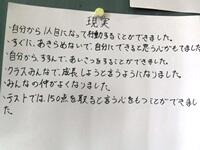 現実
・自分から1人目になって行動することができました。
・すぐに、あきらめないで、自分にできると思う心がもてました。
・自分から、すすんで、あいさつをすることができました。
・クラスみんなで、成長しようと言うようになりました。
・みんなの仲がよくなりました。
・テストでは、150点を取ると言う心をもつことができまし
た。